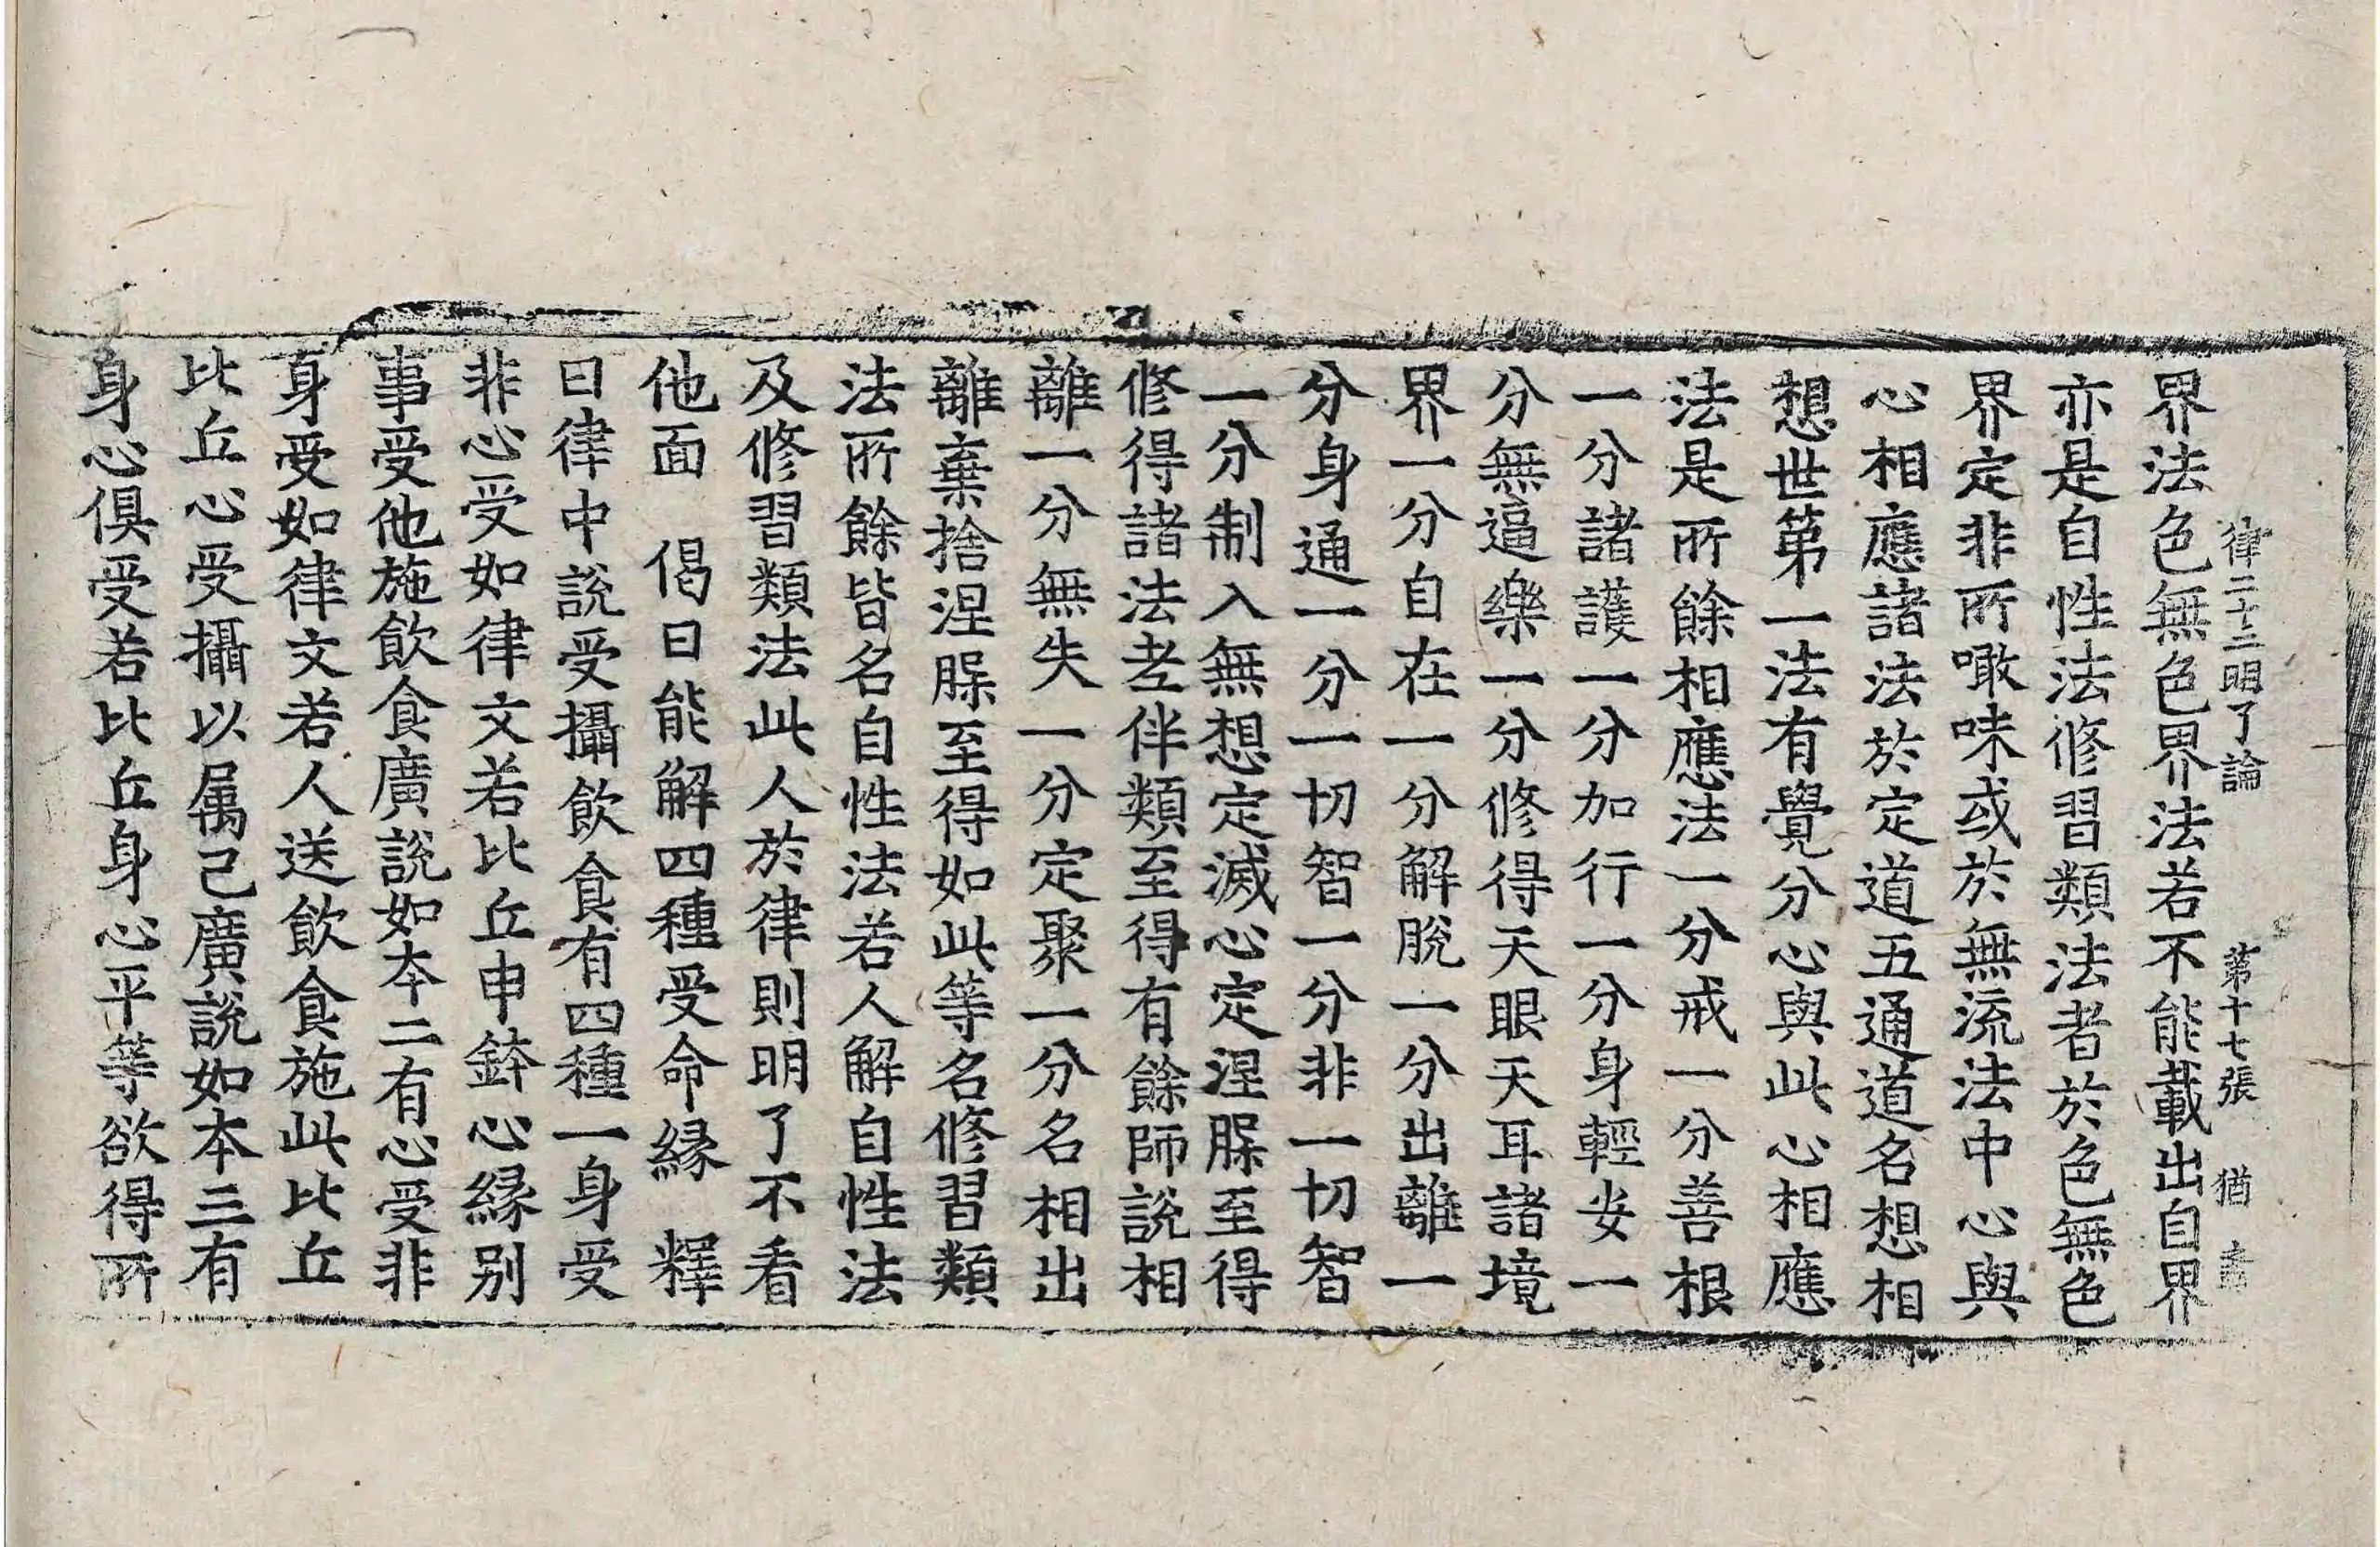 律二十二明了論　第十七張　猶
界法色無色界法若不能載出自界
亦是自性法修習類法者於色無色
界定非所噉味或於無流法中心與
心相應諸法於定道五通道名想相
想世第一法有覺分心與此心相應
法是所餘相應法一分戒一分善根
一分諸護一分加行一分身輕安一
分無逼樂一分修得天眼天耳諸境
界一分自在一分解脫一分出離一
分身通一分一切智一分非一切智
一分制入無想定滅心定涅脲至得
修得諸法老伴類至得有餘師說相
離一分無失一分定聚一分名相出
離棄捨涅脲至得如此等名修習類
法所餘皆名自性法若人解自性法
及修習類法此人於律則明了不看
他面　偈曰能解四種受命緣　釋
曰律中說受攝飲食有四種一身受
非心受如律文若比丘申鉢心緣別
事受他施飲食廣說如本二有心受非
身受如律文若人送飲食施此比丘
比丘心受攝以属己廣說如本三有
身心俱受若比丘身心平等欲得所